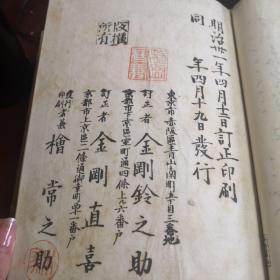 明治卅一年四月十三日訂正印刷
同 年四月十九日發行
東京市赤阪區青山南町五丁目三番地
訂正者 金剛鈴之助
京都市上京區室町通四條上ル六番戸
訂正者 金剛直喜
京都市上京區二條通御幸町一番戸
發行印刷者兼 檜常之助
版權所有